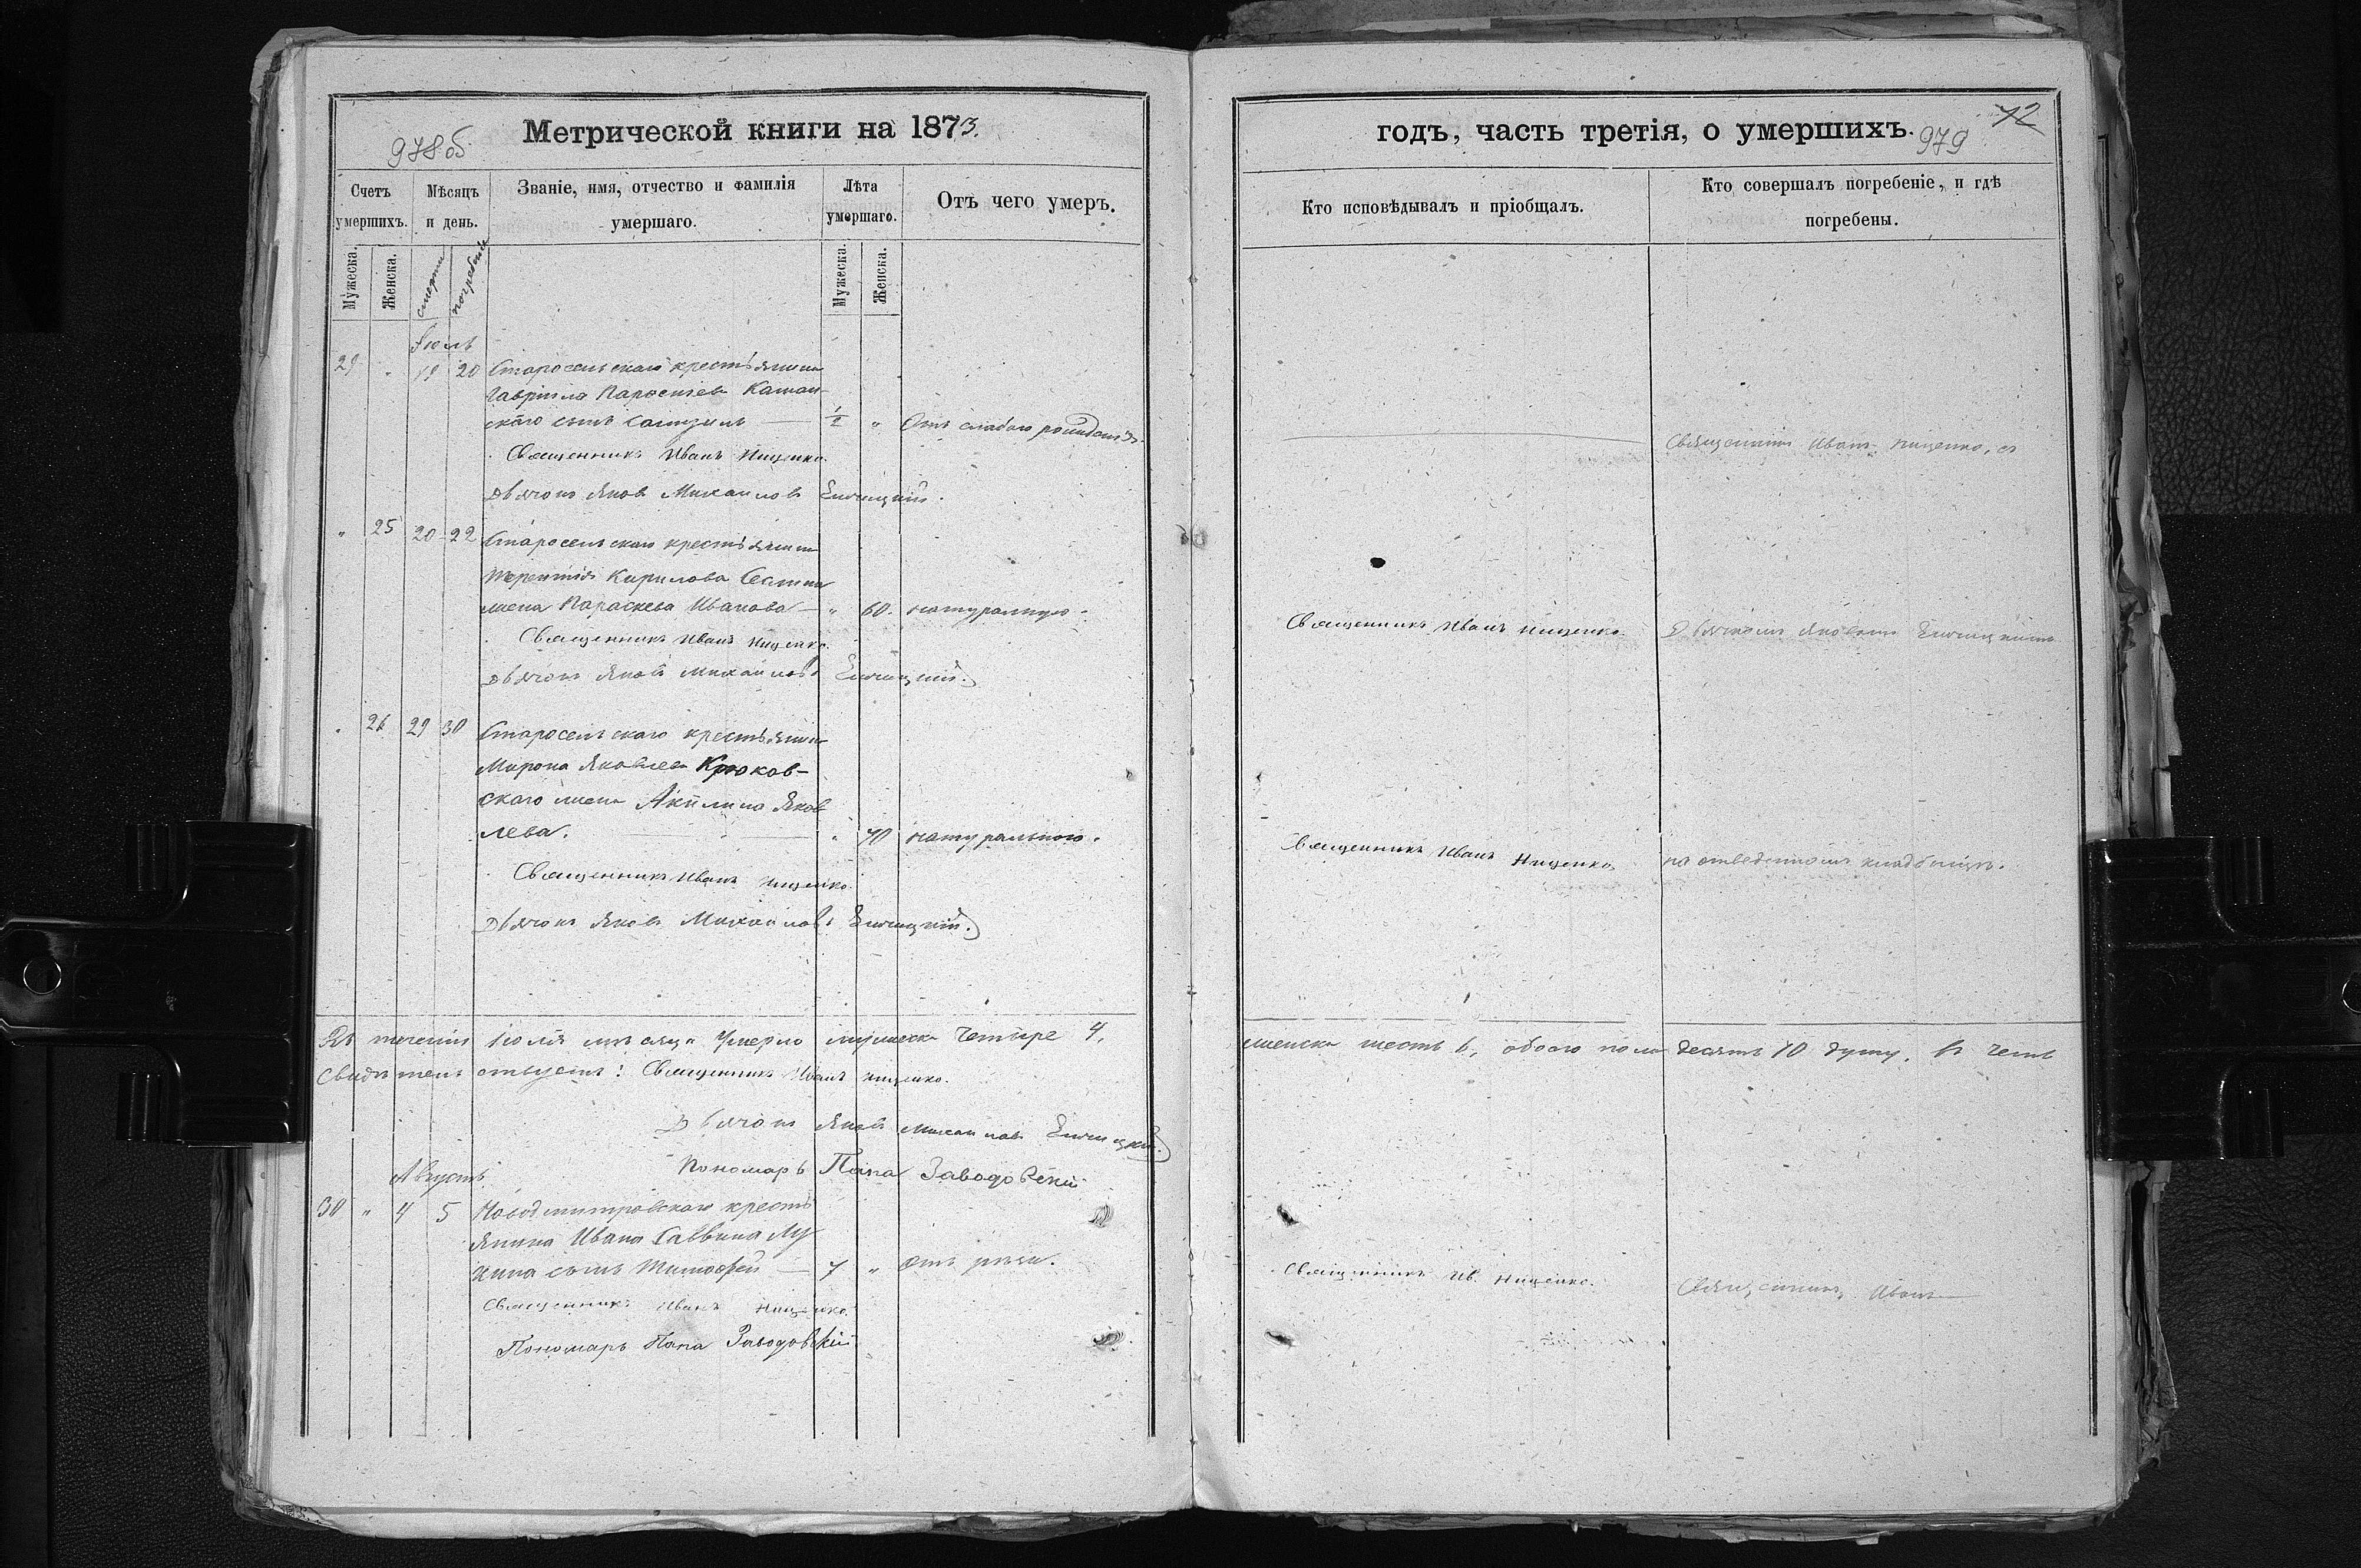 Метрической книги на 1873.
978 об.
Счетъ умершихъ.
Мѣсяцъ и день.
Званіе, имя, отчество и фамилія умершаго.
Лѣта умершаго.
Отъ чего умеръ.
Мужеска.
Женска.
смерти
погребенія
Мужеска.
Женска.
Іюль
29 " 19 20 Старосельскаго крестьянина
Гавріила
скаго сынъ 1/2 " Отъ слабаго рожденія.
Священникъ Иванъ Нищенко.
Дьячокъ Яковъ Михайловъ
" 25 20 22 Старосельскаго крестьянина
Терентія Кирилова
жена Параскева Иванова — " 60. натурально.
Священникъ Иванъ Нищенко.
Дьячокъ Яковъ Михайловъ
" 26 29 30 Старосельскаго крестьянина
Мирона Яковлева Крюков-
скаго жена Акилина Яков
лева. " 70 натурально.
Священникъ Иванъ Нищенко.
Дьячокъ Яковъ Михайловъ
Въ теченіи Іюля мѣсяца умерло мужеска четыре 4,
свидѣтельствуемъ: Священникъ Иванъ Нищенко.
Дьячокъ Яковъ Михайловъ
Пономарь Папа Заводовскій
Августъ
30 " 4 5 Новодмитровскаго кресть
янина Ивана Саввина Лу
сынъ Тимофей — 7 " отъ
Священникъ Иванъ Нищенко.
Пономарь Папа Заводовскій
годъ, часть третія, о умершихъ.
979
72
Кто исповѣдывалъ и пріобщалъ.
Кто совершалъ погребеніе, и гдѣ
погребены.
Священникъ Иванъ Нищенко, съ
Священникъ Иванъ Нищенко. Дьячкомъ Яковомъ
Священникъ Иванъ Нищенко на отведенномъ кладбищѣ.
женска шесть 6, обоего пола десять 10 душъ. въ чемъ
Священникъ Ив. Нищенко. Священникъ Иванъ